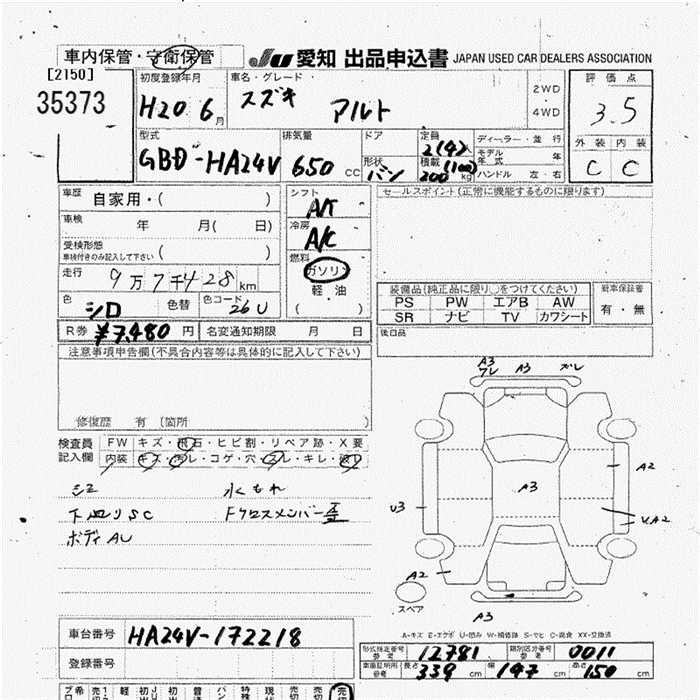 車内保管・守衛保管
JU 愛知 出品申込書 JAPAN USED CAR DEALERS ASSOCIATION
[2150]
35373
初度登録年月 H20 6月
車名・グレード スズキ アルト
2WD
4WD
評価点
3.5
外装 内装
C C
型式 GBD-HA24V
排気量 650 cc
ドア
形状 バン
定員 2(4)
積載 200 (100) kg
ディーラー・並行
モデル年式 年
ハンドル 左・右
車歴 自家用・( )
車検 年 月( 日)
受検形態
車検付きのみ記入して下さい ( )
走行 9万7千428km
色 シロ 色替 色コード 26U
R券 ¥7,480円 名変通知期限 月 日
シフト A/T
冷房 A/C
燃料
ガソリン
軽・油
( )
セールスポイント(正常に機能するものに限ります)
装備品(純正品に限り○をつけてください)
PS PW エアB AW
SR ナビ TV カワシート
新車保証書
有・無
後日品
注意事項申告欄(不具合内容等は具体的に記入して下さい)
修復歴 有 (箇所 )
検査員記入欄
FW キズ・飛石・ヒビ割・リペア跡・X要
内装 キズ・汚レ・コゲ・穴・スレ・キレ
水もれ
下回りSC Fクロスメンバー歪
ボディAU
A3 A3 ズレ
A3
A2
U3
A2
A2
A3
スペア
A-キズ E-エクボ U-凹み W-補修跡 S-サビ C-腐食 XX-交換済
車台番号 HA24V-172218
登録番号
形式指定番号 参考 12781
類別区分番号 参考 0011
車庫証明用 参考 長さ 339 cm 幅 147 cm 高さ 150 cm